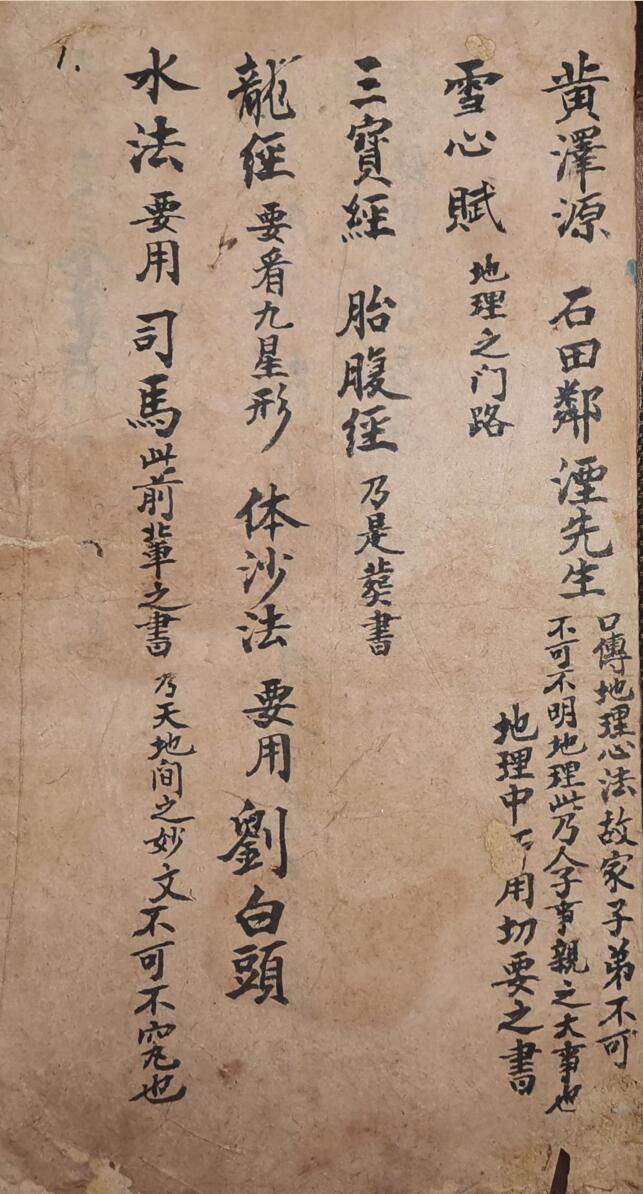 黄澤源 石田鄰湮先生
口傳地理心法故家子弟不可
不可不明地理此乃人子事親之大事也
地理中用切要之書
雪心賦 地理之门路
三寳經 胎腹經 乃是葬書
龍經 要看九星形 体沙法 要用 劉白頭
水法 要用 司馬 此前輩之書 乃天地间之妙文不可不究也
1.